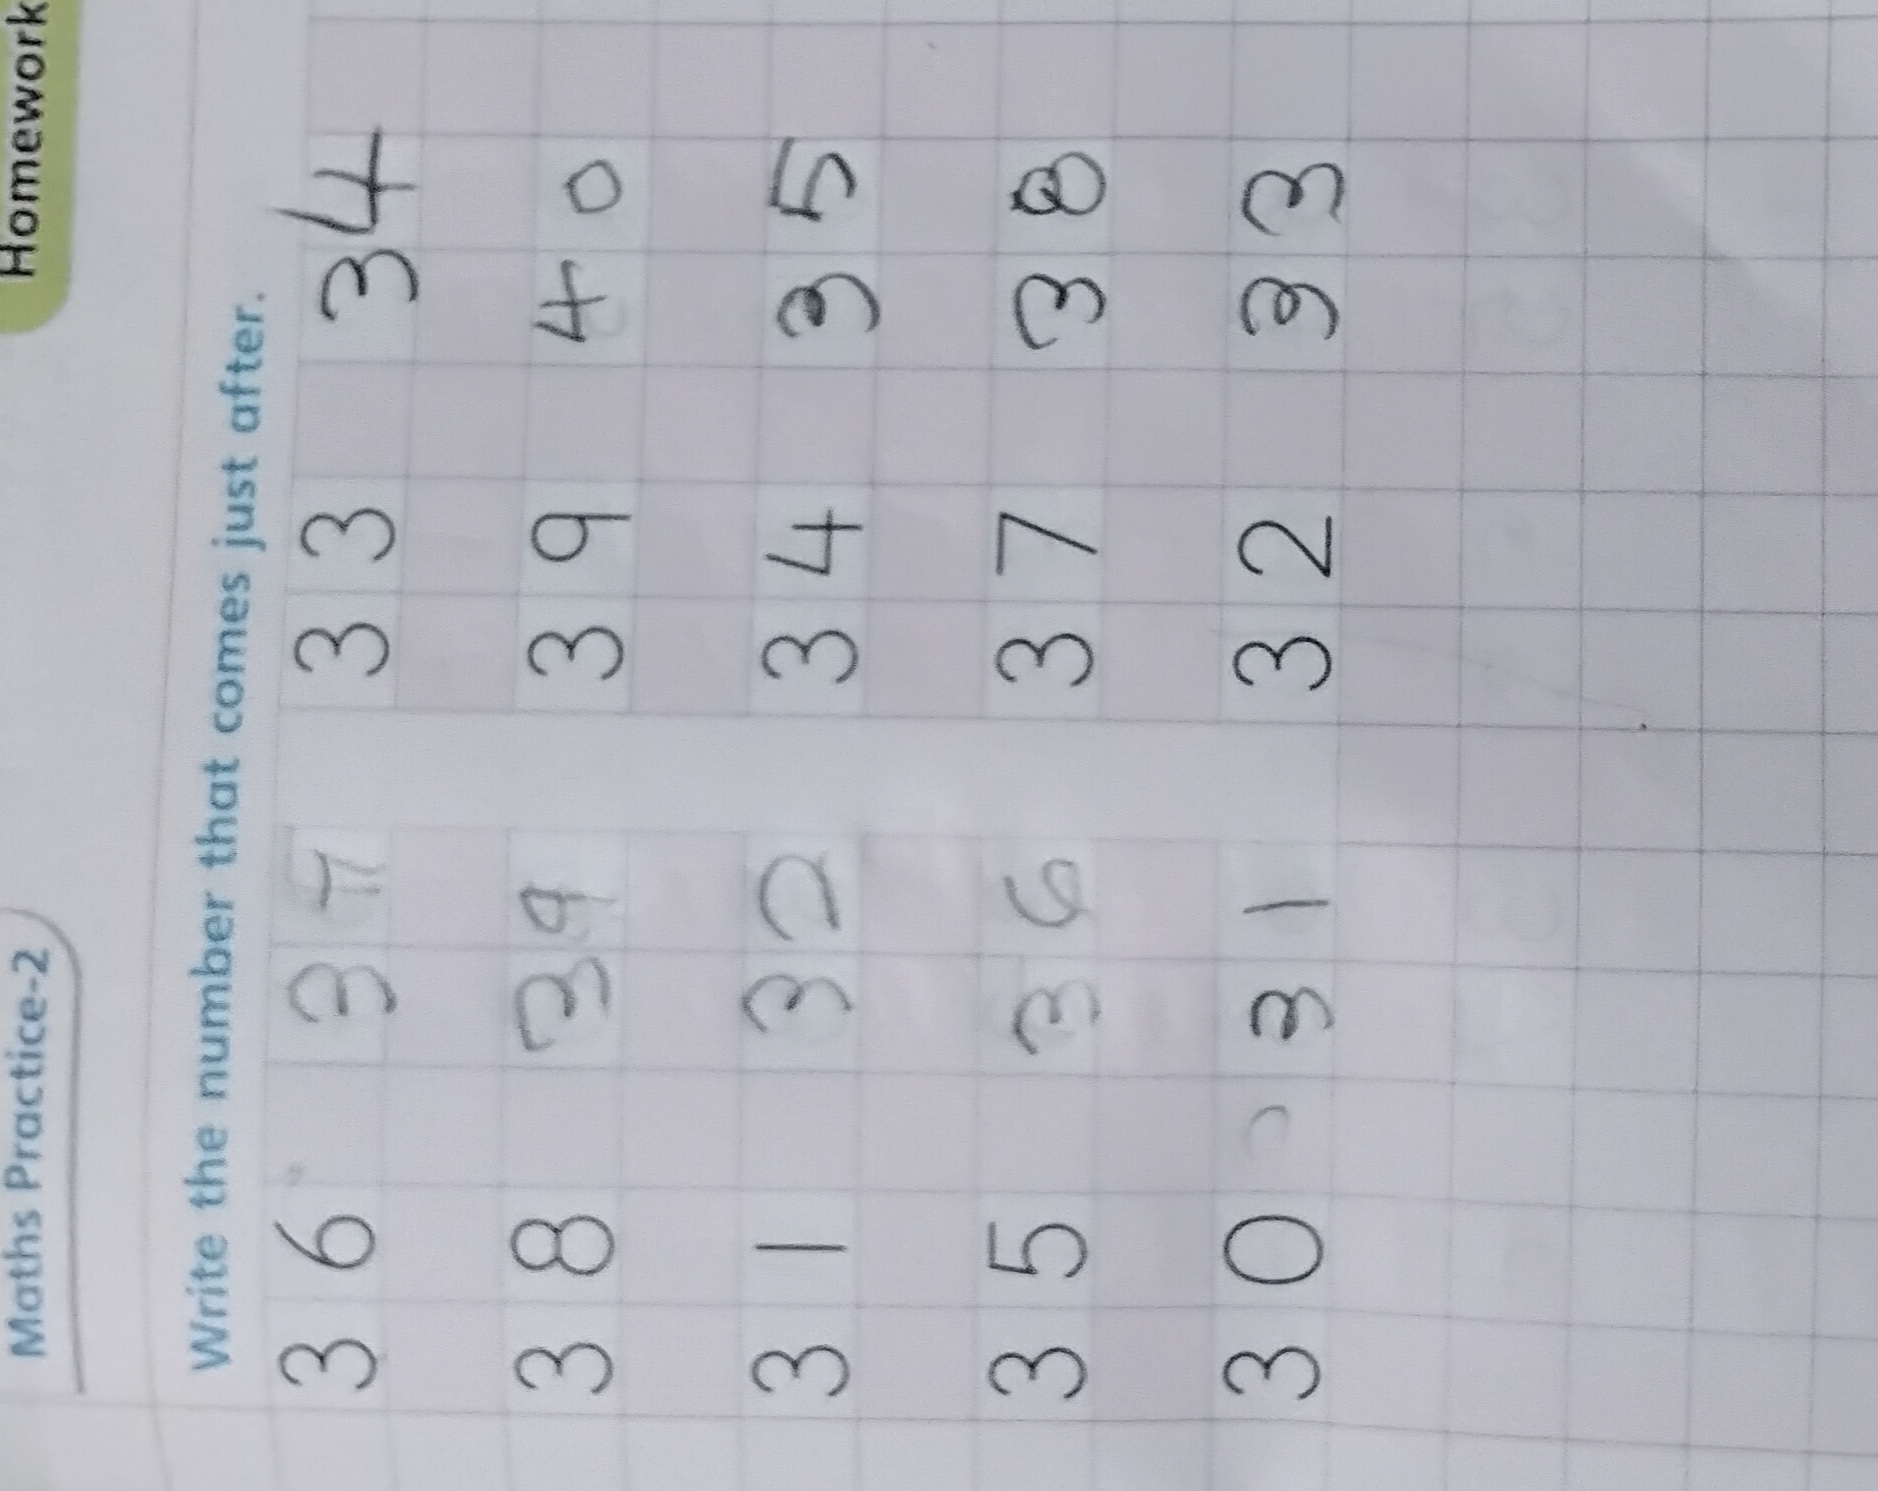 Maths Practice-2 Homework
Write the number that comes just after.
36 37 33 34
38 39 39 40
31 32 34 35
35 36 37 38
30 31 32 33